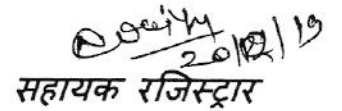 20/12/19
सहायक रजिस्ट्रार